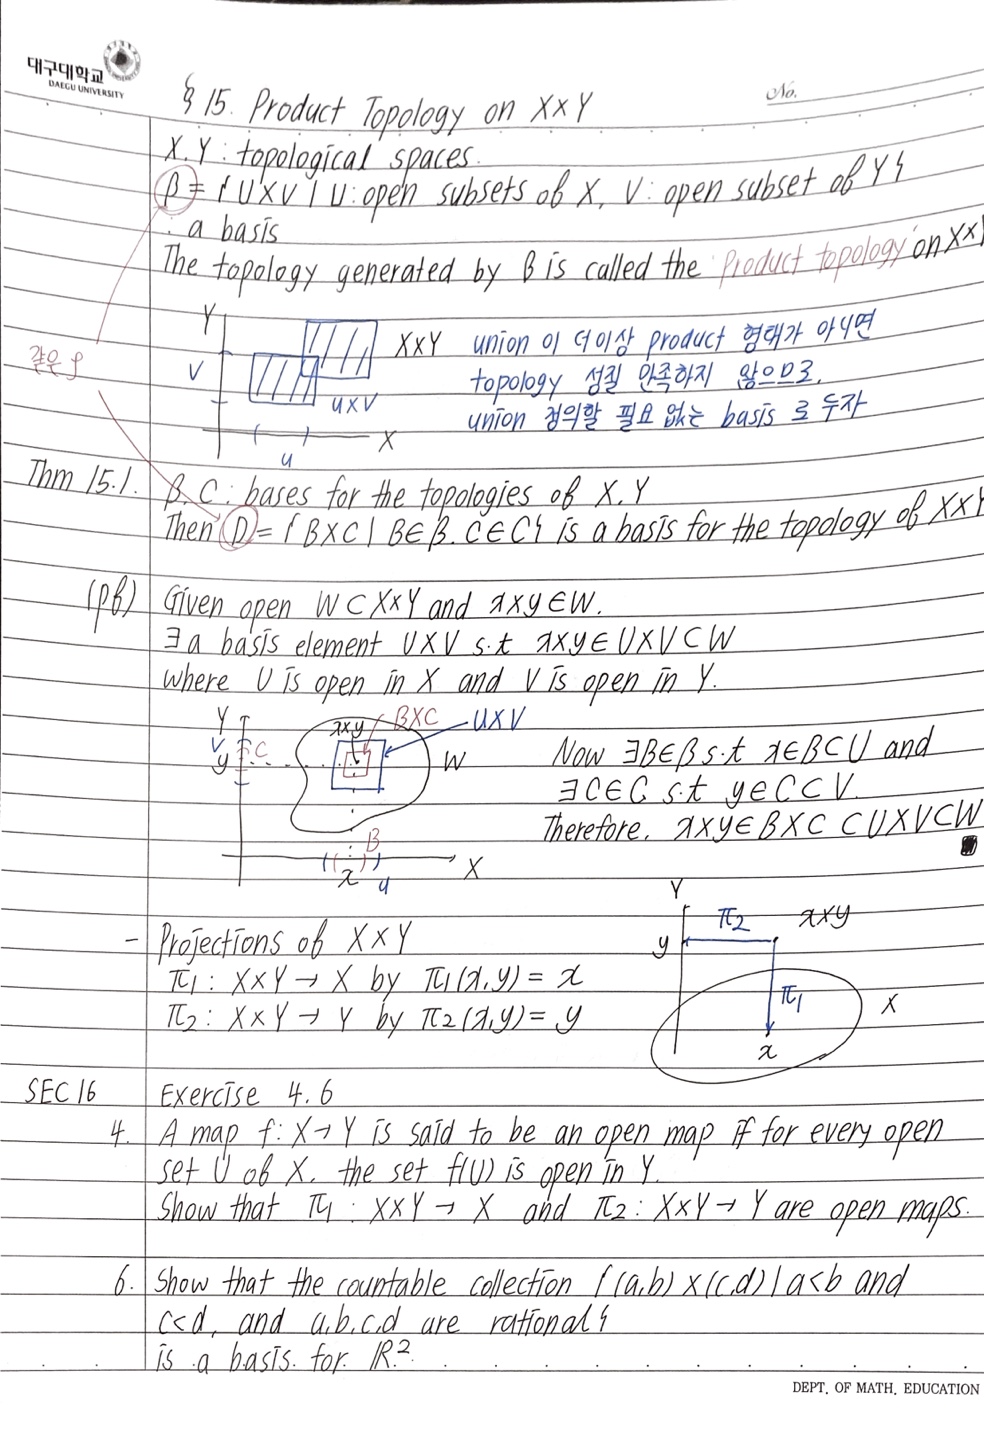 대구대학교
DAEGU UNIVERSITY
No.
§ 15. Product Topology on X×Y
X, Y : topological spaces.
β = { U×V | U: open subsets of X, V: open subset of Y }
: a basis
The topology generated by β is called the 'product topology' on X×Y
Y
X×Y
V
U×V
X
U
union 이 더이상 product 형태가 아니면
topology 성질 만족하지 않으므로,
union 정의할 필요 없는 basis 로 두자
같은
Thm 15.1.
β, C : bases for the topologies of X, Y
Then D = { B×C | B∈β, C∈C } is a basis for the topology of X×Y
(pf)
Given open W⊂X×Y and x×y∈W.
∃ a basis element U×V s.t x×y∈U×V⊂W
where U is open in X and V is open in Y.
Y
V
y
C
x×y
B×C
U×V
W
B
x
U
X
Now ∃B∈β s.t x∈B⊂U and
∃C∈C s.t y∈C⊂V.
Therefore, x×y∈B×C⊂U×V⊂W
- Projections of X×Y
π1 : X×Y → X by π1(x,y) = x
π2 : X×Y → Y by π2(x,y) = y
Y
π2
x×y
y
π1
X
x
SEC 16
Exercise 4. 6
4. A map f: X→Y is said to be an open map if for every open
set U of X, the set f(U) is open in Y.
Show that π1 : X×Y → X and π2 : X×Y → Y are open maps.
6. Show that the countable collection { (a,b)×(c,d) | a<b and
c<d, and a,b,c,d are rational }
is a basis for ℝ²
DEPT. OF MATH. EDUCATION